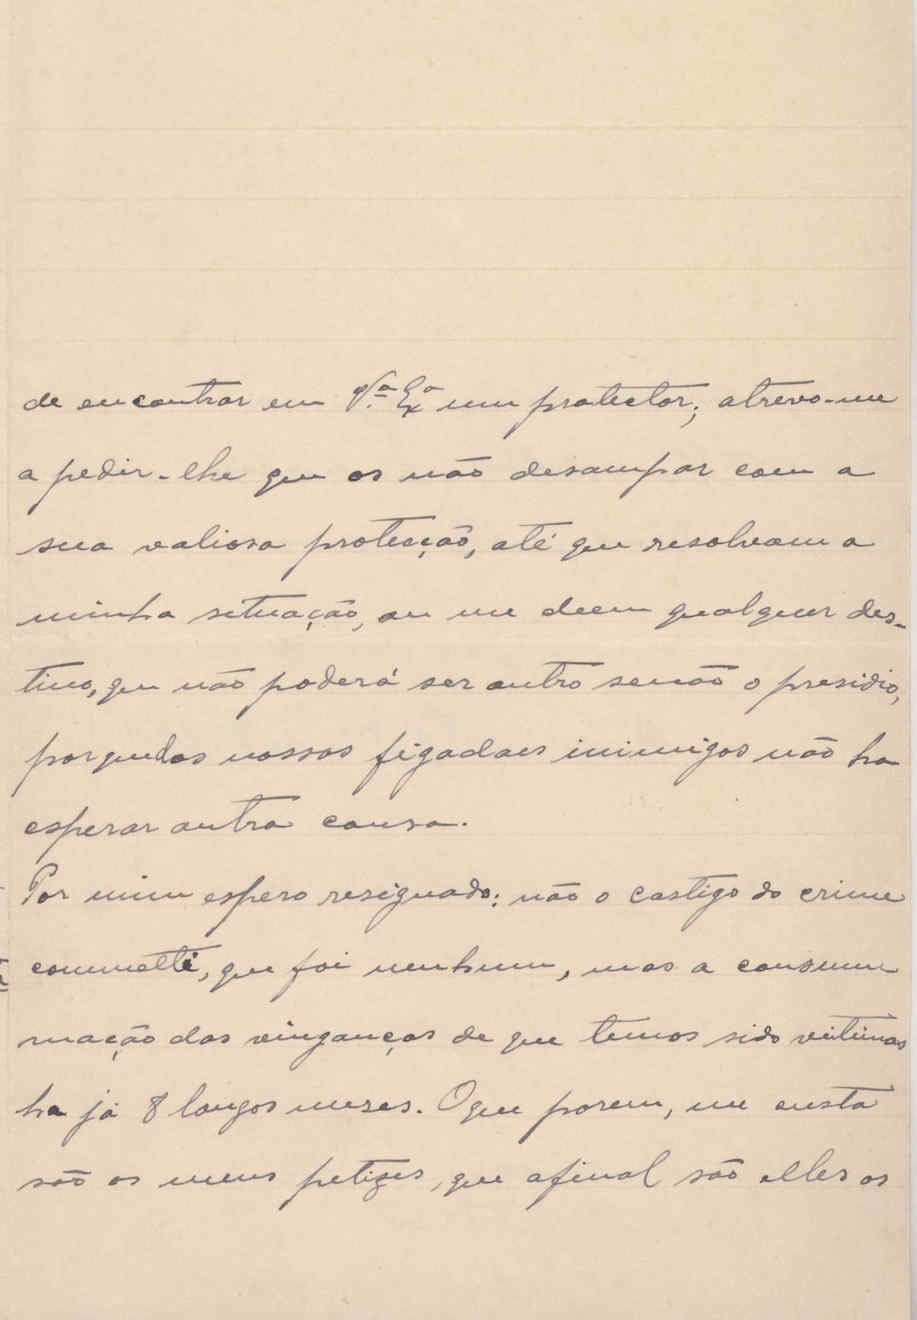 de encontrar em Vª. Exª um protector; atrevo-me
a pedir-lhe que os não desampar com a
sua valiosa protecção, até que resolvam a
minha setuação, ou me deem qualquer des-
tino, que não poderá ser outro senão o presidio,
porque dos nossos figadaes inimigos não ha
esperar outra cousa.
Por mim espero resignado; não o castigo do crime
commetti, que foi nenhum, mas a consumm
mação das vinganças de que temos sido victimas
ha já 8 longos mezes. O que porem, me custa
são os meus petizes, que afinal são elles os